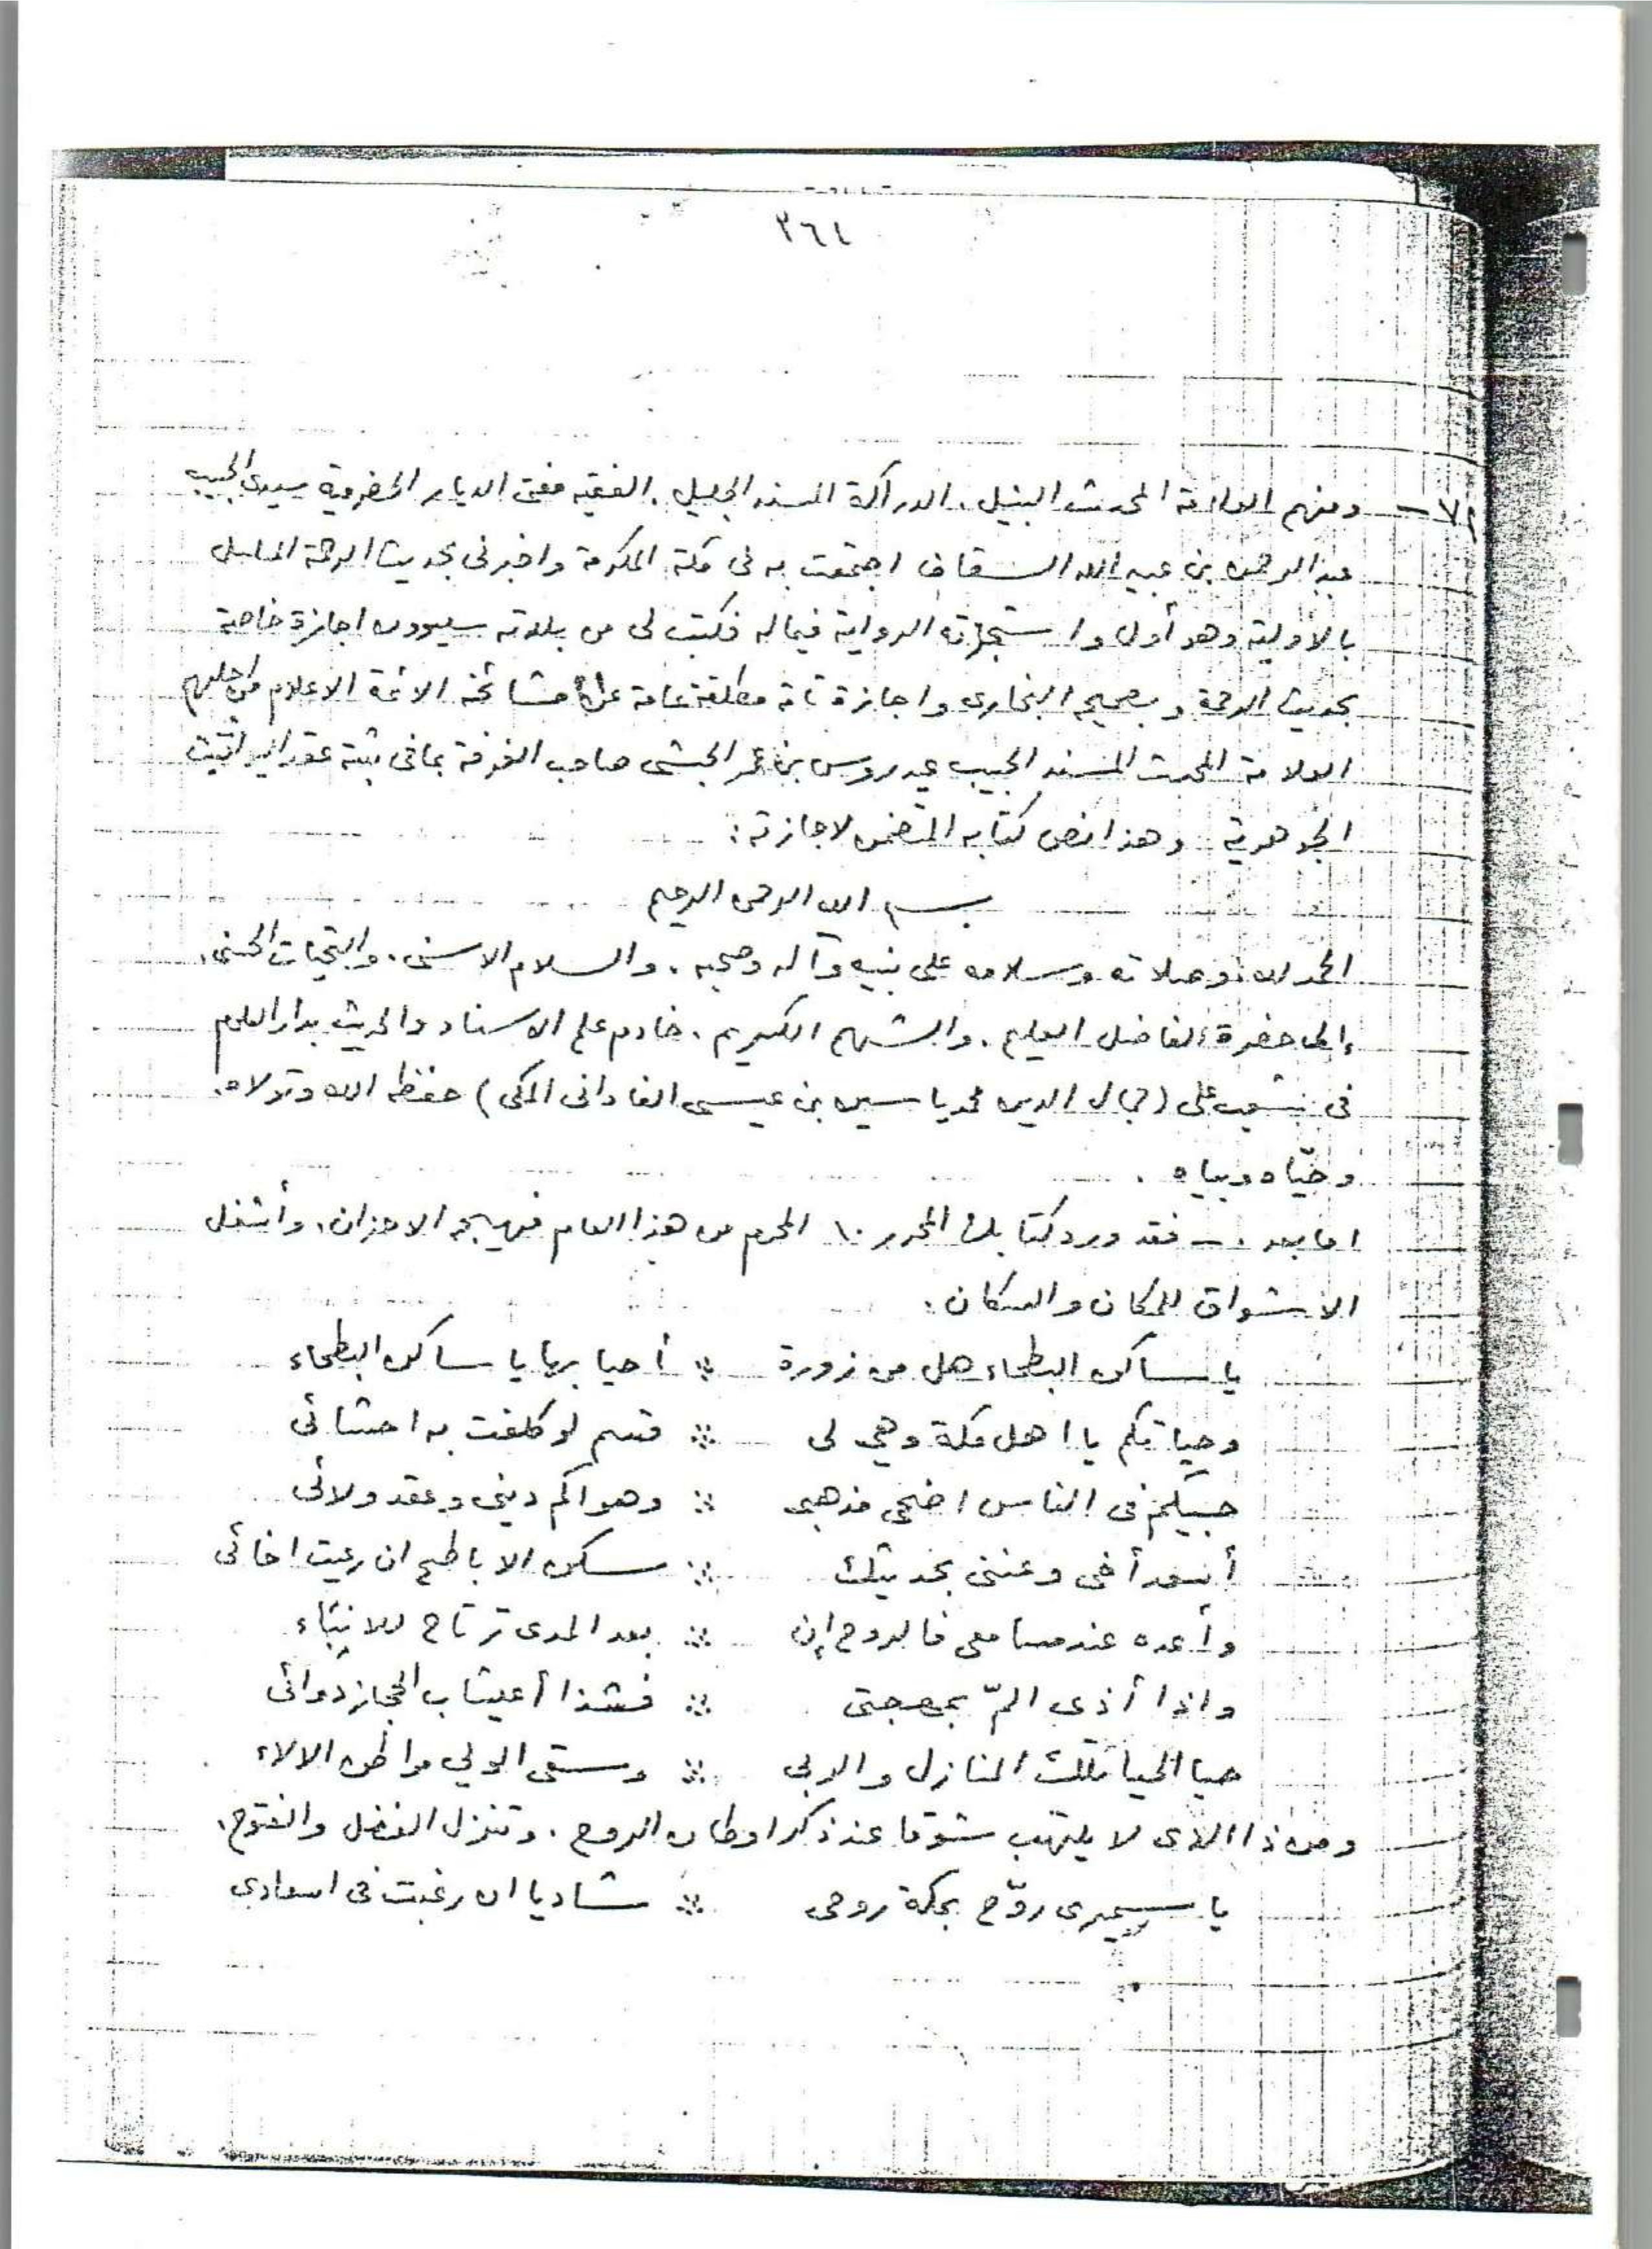 ٣٦٤
٧٢ - ومنهم العلامة المحدث النبيل. الدراكة المسند الجليل. الفقيه مفتى الديار الحضرمية سيدى الحبيب
عبد الرحمن بن عبيد الله السقاف اجتمعت به فى مكة المكرمة واخبرنى بحديث الرحمة المسلسل
بالأولية وهو أول واستجزته الرواية فيما له فكتب لى من بلدته سيوون اجازة خاصة
بحديث الرحمة وبصحيح البخارى واجازة تامة مطلقة عامة عن مشائخه الائمة الاعلام من اجلهم
العلامة المحدث المسند الحبيب عيدروس بن عمر الحبشى صاحب الغرفة بما فى ثبته عقد اليواقيت
الجوهرية وهذا نص كتابه المتضمن لاجازته:
بسم الله الرحمن الرحيم
الحمد لله وصلاته وسلامه على نبيه وآله وصحبه. والسلام الاسنى. والتحيات الحسنى.
إلى حضرة الفاضل العليم. والشهم الكريم. خادم علم الاسناد والحديث بدار العلوم
فى شعب على (جمال الدين محمد ياسين بن عيسى الفادانى المكى) حفظه الله وتولاه.
وحيّاه وبياه.
اما بعد. - فقد ورد كتابك المحرر ١٠ المحرم من هذا العام فهيج الاحزان. وأشعل
الاشواق للمكان والسكان.
يا ساكن البطحاء هل من زورة ∴ أحيا بها يا ساكن البطحاء
وحياتكم يا اهل مكة وهي لى ∴ قسم لو كلفت به احشائى
حبيكم فى الناس اضحى مذهبى ∴ وهواكم ديني وعقد ولائى
أسعد أخى وغننى بحديث ∴ سكن الاباطح ان رعيت اخائى
وأعده عند مسامعى فالروح إن ∴ بعد المدى ترتاح للانباء
واذا أذى المّ بمهجتى ∴ فشذا أعيشاب الحجاز دوائى
حيا الحيا تلك المنازل والربى ∴ وسقى الولي مواطن الالاء
ومن ذا الذى لا يلتهب شوقا عند ذكر اوطان الروح. وتنزل الفضل والفتوح.
يا سميرى روّح بمكة روحى ∴ شاديا ان رغبت فى اسعادى